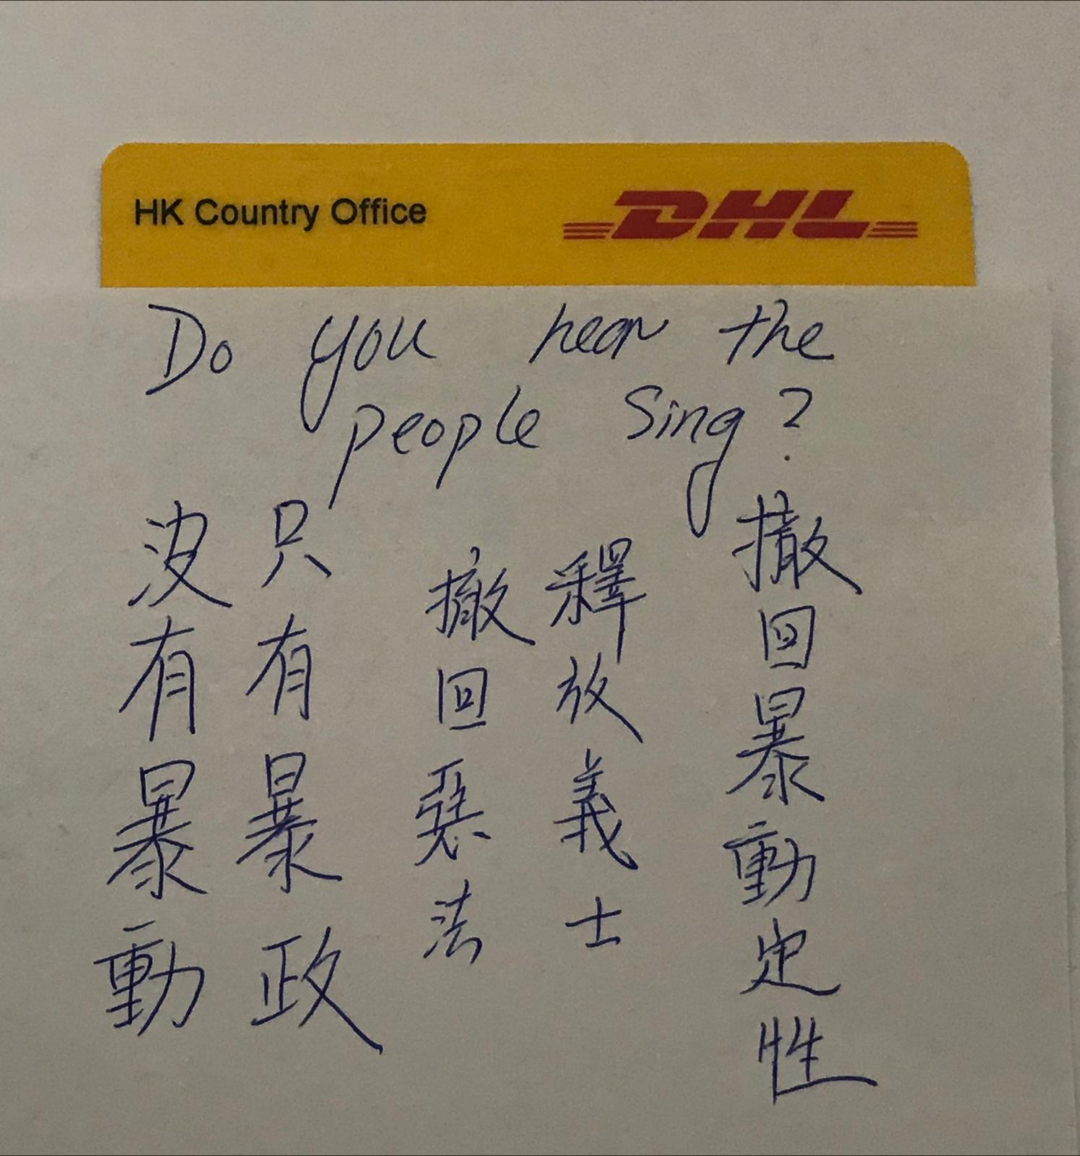 HK Country Office
DHL
Do you hear the
people Sing?
撤回暴動定性
釋放義士
撤回惡法
只有暴政
沒有暴動